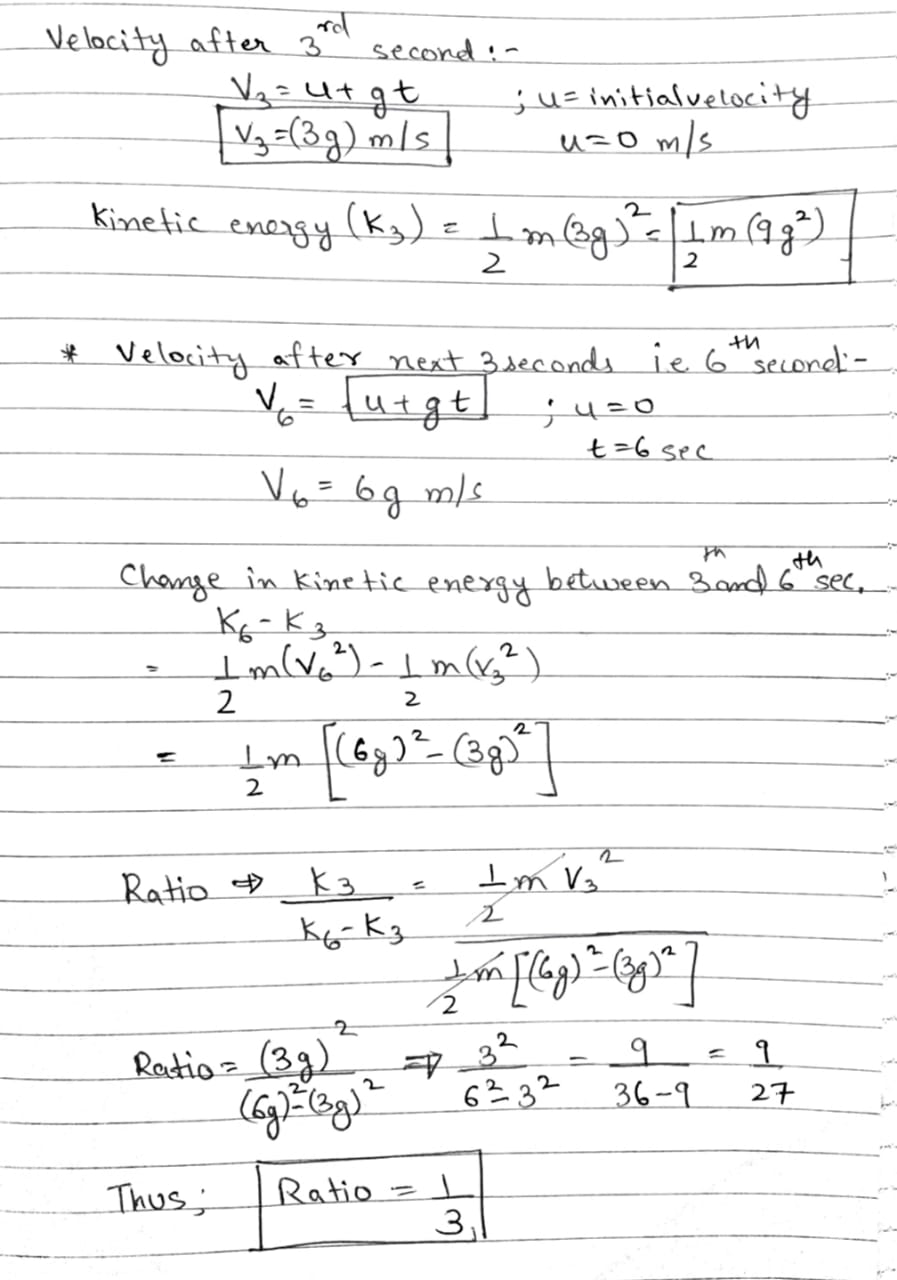 Velocity after 3rd second :-
V₃ = u + gt ; u = initial velocity
V₃ = (3g) m/s u = 0 m/s
Kinetic energy (K₃) = 1/2 m (3g)² = 1/2 m (9g²)
* Velocity after next 3 seconds i.e 6th second :-
V₆ = u + gt ; u = 0
t = 6 sec
V₆ = 6g m/s
Change in Kinetic energy between 3th and 6th sec.
K₆ - K₃
= 1/2 m (V₆²) - 1/2 m (V₃²)
= 1/2 m [(6g)² - (3g)²]
Ratio ⇒ K₃/(K₆ - K₃) = 1/2 m V₃² / 1/2 m [(6g)² - (3g)²]
Ratio = (3g)²/((6g)² - (3g)²) ⇒ 3²/(6² - 3²) = 9/(36-9) = 9/27
Thus; Ratio = 1/3